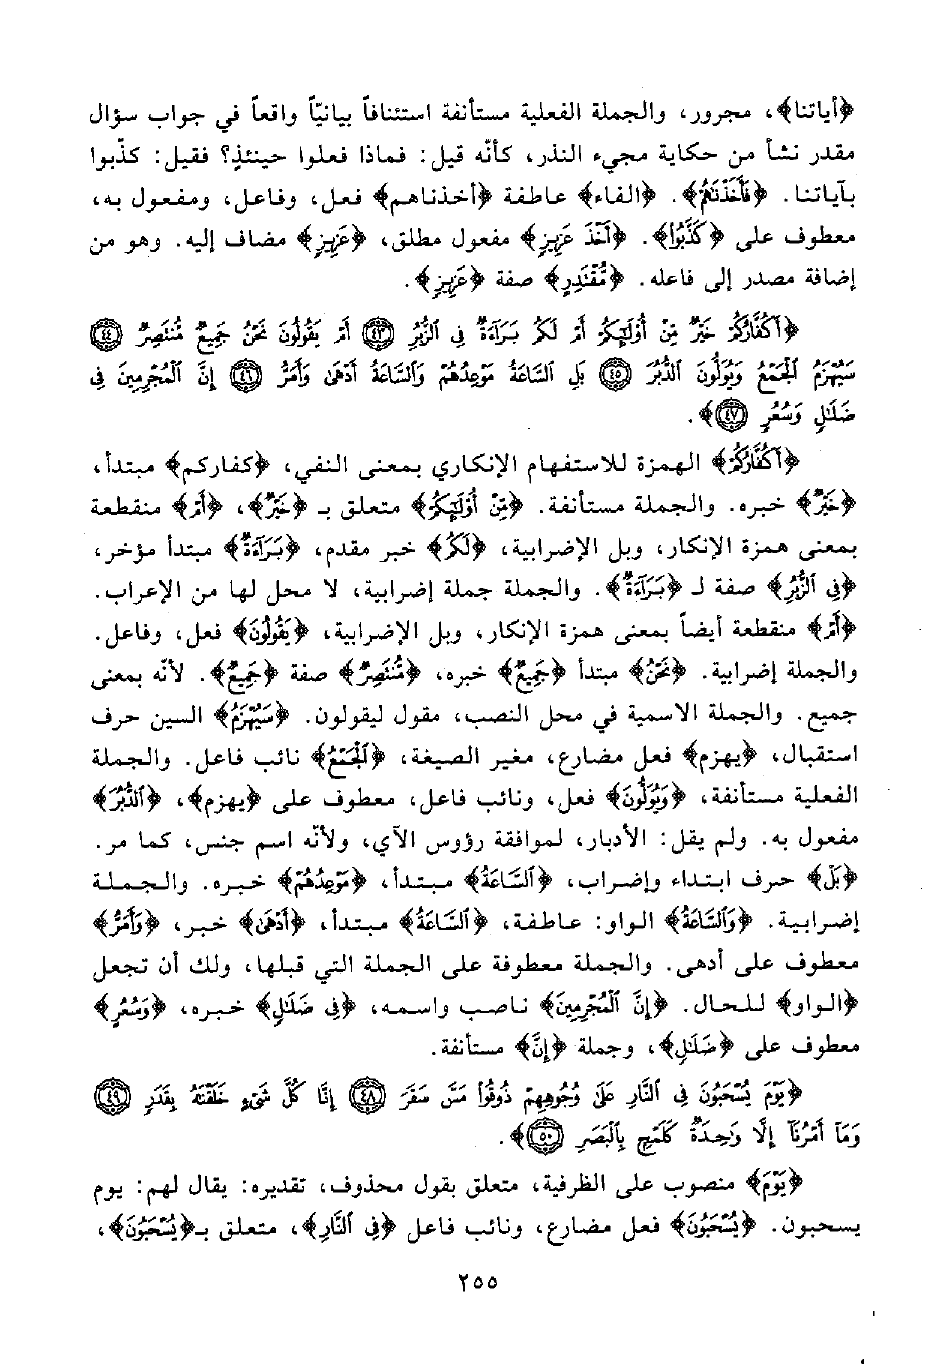 ﴿أياتنا﴾، مجرور، والجملة الفعلية مستأنفة استئنافاً بيانيّاً واقعاً في جواب سؤال
مقدر نشأ من حكاية مجيء النذر، كأنّه قيل: فماذا فعلوا حينئذٍ؟ فقيل: كذّبوا
بآياتنا. ﴿فَأَخَذْنَٰهُمْ﴾. ﴿الفاء﴾ عاطفة ﴿أخذناهم﴾ فعل، وفاعل، ومفعول به،
معطوف على ﴿كَذَّبُوا﴾. ﴿أَخْذَ عَزِيزٍ﴾ مفعول مطلق، ﴿عَزِيزٍ﴾ مضاف إليه. وهو من
إضافة مصدر إلى فاعله. ﴿مُّقْتَدِرٍ﴾ صفة ﴿عَزِيزٍ﴾.
﴿أَكُفَّارُكُمْ خَيْرٌ مِّنْ أُو۟لَٰٓئِكُمْ أَمْ لَكُم بَرَآءَةٌ فِى ٱلزُّبُرِ ٤٣ أَمْ يَقُولُونَ نَحْنُ جَمِيعٌ مُّنتَصِرٌ ٤٤
سَيُهْزَمُ ٱلْجَمْعُ وَيُوَلُّونَ ٱلدُّبُرَ ٤٥ بَلِ ٱلسَّاعَةُ مَوْعِدُهُمْ وَٱلسَّاعَةُ أَدْهَىٰ وَأَمَرُّ ٤٦ إِنَّ ٱلْمُجْرِمِينَ فِى
ضَلَٰلٍ وَسُعُرٍ ٤٧﴾.
﴿أَكُفَّارُكُمْ﴾ الهمزة للاستفهام الإنكاري بمعنى النفي، ﴿كفاركم﴾ مبتدأ،
﴿خَيْرٌ﴾ خبره. والجملة مستأنفة. ﴿مِّنْ أُو۟لَٰٓئِكُمْ﴾ متعلق بـ ﴿خَيْرٌ﴾، ﴿أَمْ﴾ منقطعة
بمعنى همزة الإنكار، وبل الإضرابية، ﴿لَكُم﴾ خبر مقدم، ﴿بَرَآءَةٌ﴾ مبتدأ مؤخر،
﴿فِى ٱلزُّبُرِ﴾ صفة لـ ﴿بَرَآءَةٌ﴾. والجملة جملة إضرابية، لا محل لها من الإعراب.
﴿أَمْ﴾ منقطعة أيضاً بمعنى همزة الإنكار، وبل الإضرابية، ﴿يَقُولُونَ﴾ فعل، وفاعل.
والجملة إضرابية. ﴿نَحْنُ﴾ مبتدأ ﴿جَمِيعٌ﴾ خبره، ﴿مُّنتَصِرٌ﴾ صفة ﴿جَمِيعٌ﴾. لأنّه بمعنى
جميع. والجملة الاسمية في محل النصب، مقول ليقولون. ﴿سَيُهْزَمُ﴾ السين حرف
استقبال، ﴿يهزم﴾ فعل مضارع، مغير الصيغة، ﴿ٱلْجَمْعُ﴾ نائب فاعل. والجملة
الفعلية مستأنفة، ﴿وَيُوَلُّونَ﴾ فعل، ونائب فاعل، معطوف على ﴿يهزم﴾، ﴿ٱلدُّبُرَ﴾
مفعول به. ولم يقل: الأدبار، لموافقة رؤوس الآي، ولأنّه اسم جنس، كما مر.
﴿بَلِ﴾ حرف ابتداء وإضراب، ﴿ٱلسَّاعَةُ﴾ مبتدأ، ﴿مَوْعِدُهُمْ﴾ خبره. والجملة
إضرابية. ﴿وَٱلسَّاعَةُ﴾ الواو: عاطفة، ﴿ٱلسَّاعَةُ﴾ مبتدأ، ﴿أَدْهَىٰ﴾ خبر، ﴿وَأَمَرُّ﴾
معطوف على أدهى. والجملة معطوفة على الجملة التي قبلها، ولك أن تجعل
﴿الواو﴾ للحال. ﴿إِنَّ ٱلْمُجْرِمِينَ﴾ ناصب واسمه، ﴿فِى ضَلَٰلٍ﴾ خبره، ﴿وَسُعُرٍ﴾
معطوف على ﴿ضَلَٰلٍ﴾، وجملة ﴿إِنَّ﴾ مستأنفة.
﴿يَوْمَ يُسْحَبُونَ فِى ٱلنَّارِ عَلَىٰ وُجُوهِهِمْ ذُوقُوا۟ مَسَّ سَقَرَ ٤٨ إِنَّا كُلَّ شَىْءٍ خَلَقْنَٰهُ بِقَدَرٍ ٤٩
وَمَآ أَمْرُنَآ إِلَّا وَٰحِدَةٌ كَلَمْحٍۭ بِٱلْبَصَرِ ٥٠﴾.
﴿يَوْمَ﴾ منصوب على الظرفية، متعلق بقول محذوف، تقديره: يقال لهم: يوم
يسحبون. ﴿يُسْحَبُونَ﴾ فعل مضارع، ونائب فاعل ﴿فِى ٱلنَّارِ﴾، متعلق بـ﴿يُسْحَبُونَ﴾،
٢٥٥